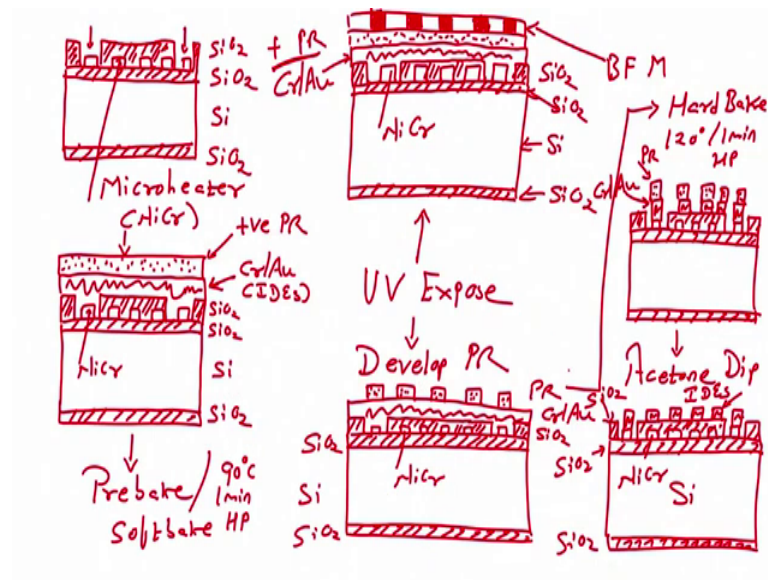 SiO2
SiO2
Si
SiO2
Microheater
(NiCr)
+ve PR
Cr/Au
(IDEs)
SiO2
SiO2
NiCr
Si
SiO2
Prebake/
Softbake
90°C
1min
HP
+ PR
Cr/Au
BFM
SiO2
SiO2
NiCr
Si
SiO2
UV Expose
Develop PR
PR
Cr/Au
SiO2
SiO2
NiCr
Si
SiO2
Hard Bake
120°/1min
HP
PR
Cr/Au
Acetone Dip
IDEs
SiO2
SiO2
NiCr
Si
SiO2